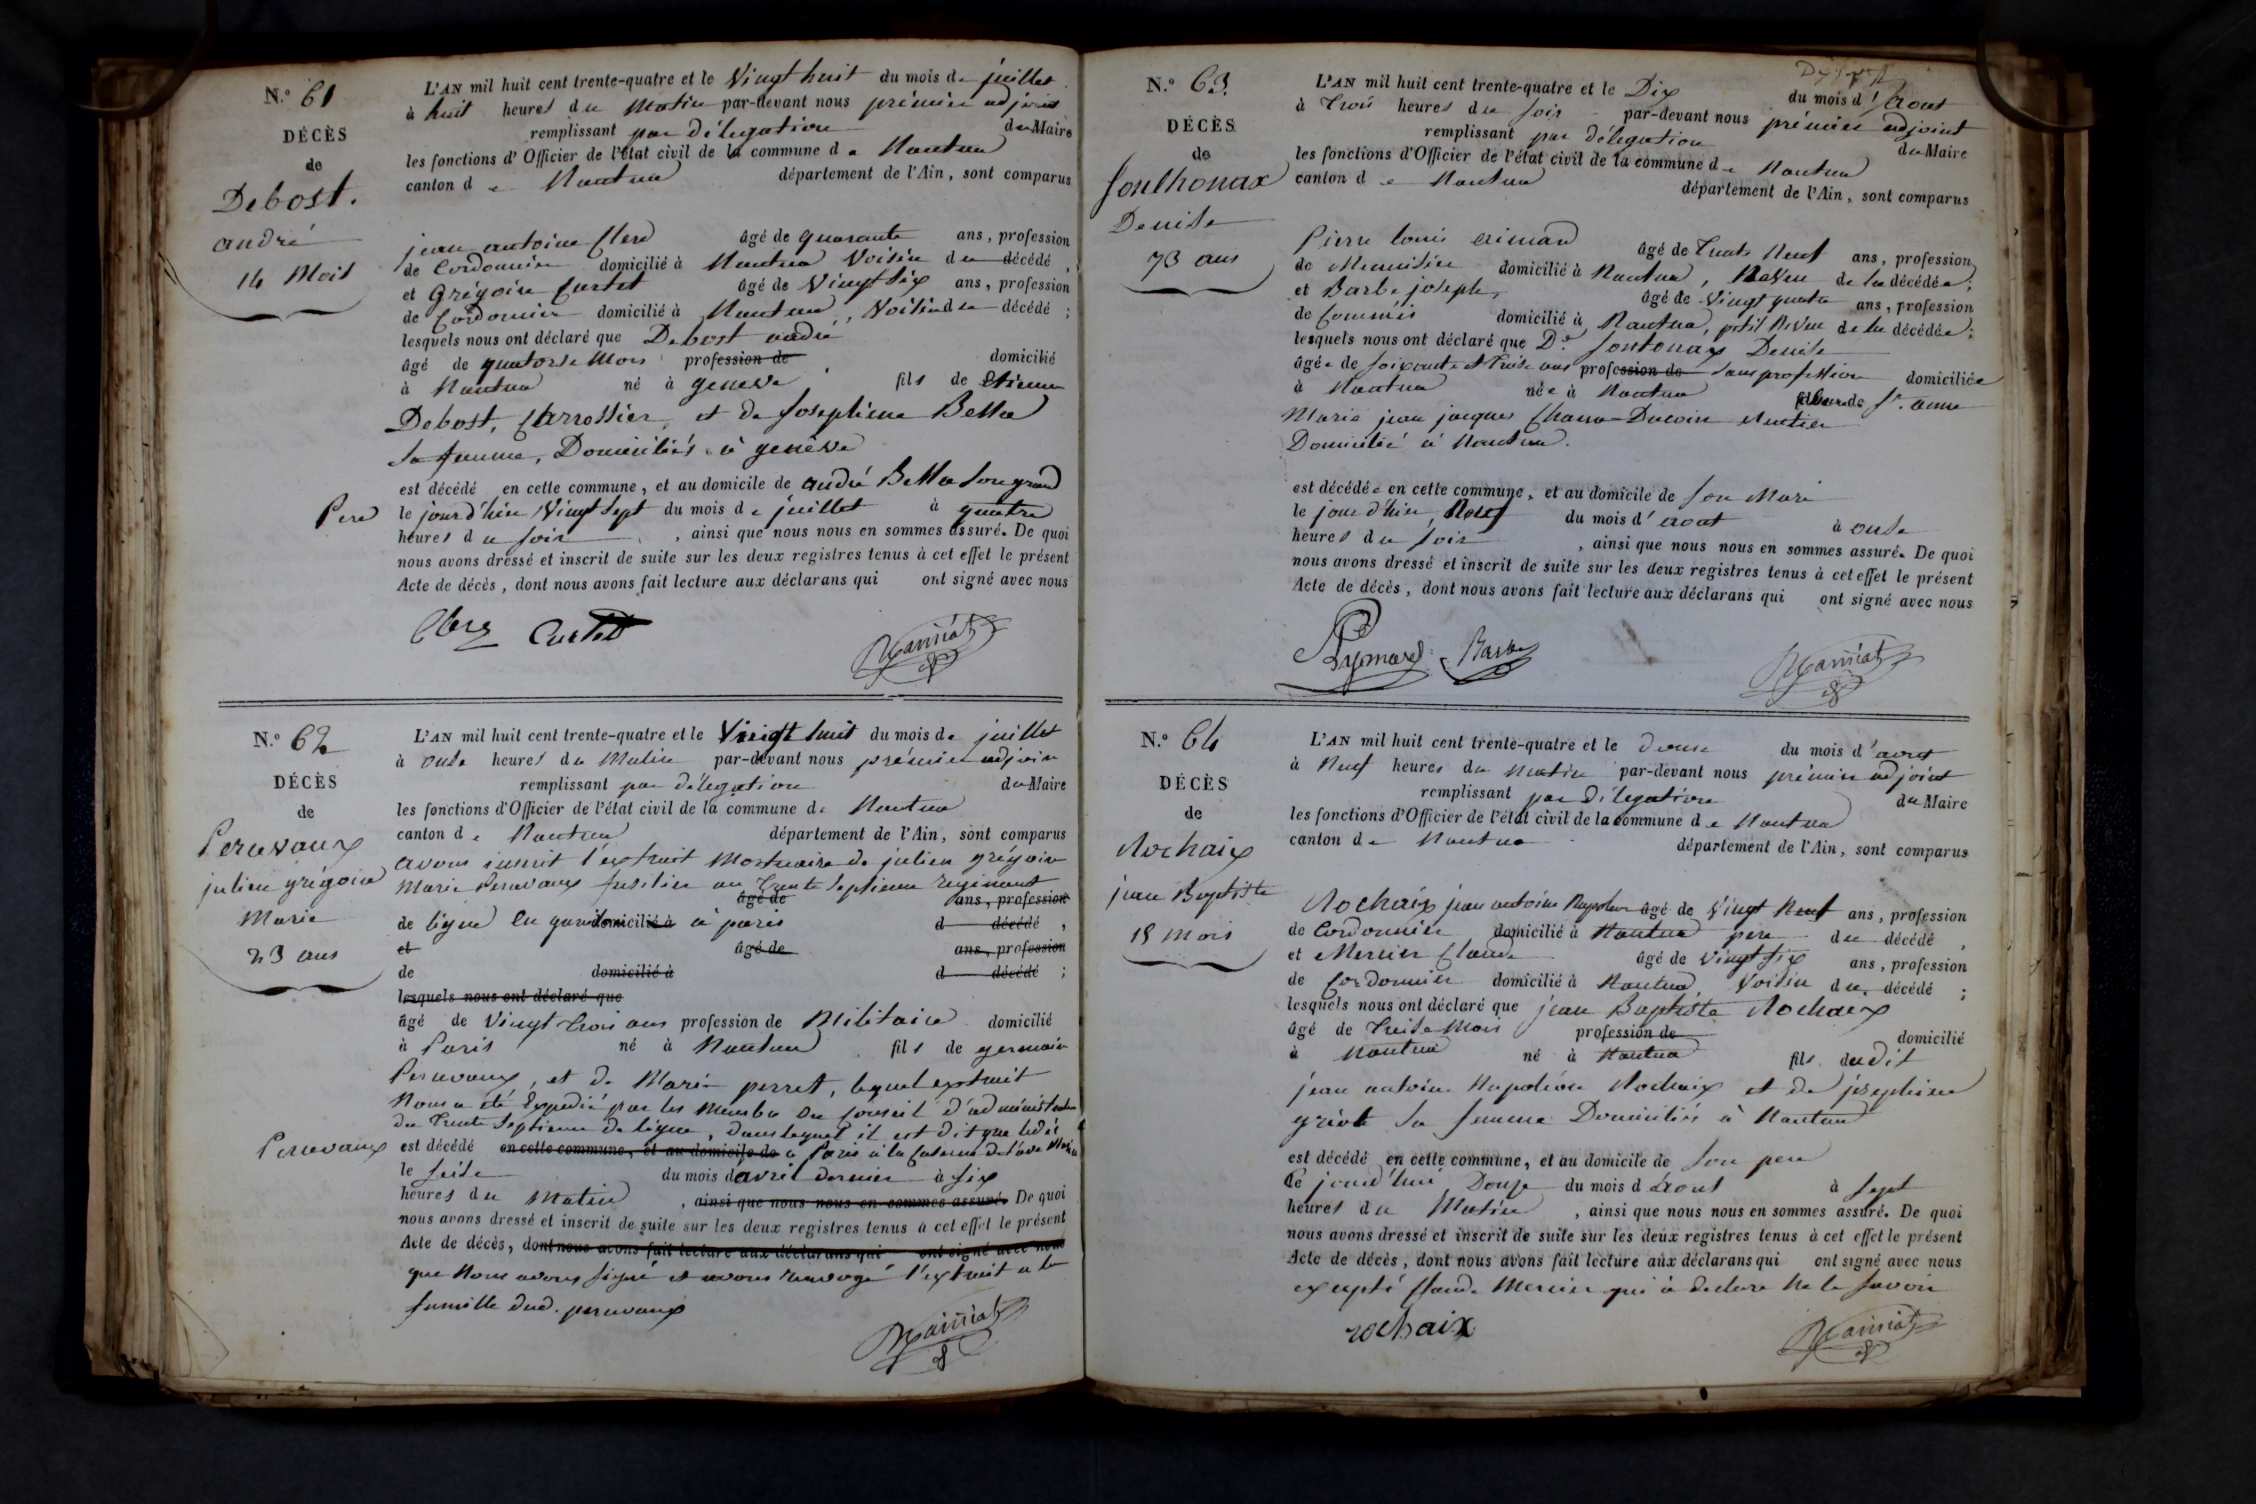 N.º 61
DÉCÈS
de
Debost.
andré
14 Mois
L'AN mil huit cent trente-quatre et le Vingt huit du mois de juillet
à huit heures du Matin par-devant nous prémier adjoint
remplissant par délegation du Maire
les fonctions d'Officier de l'état civil de la commune de Nantua
canton de Nantua département de l'Ain, sont comparus
jean antoine Clerc âgé de quarante ans, profession
de Cordonnier domicilié à Nantua Voisin du décédé,
et Grégoire Curtet âgé de Vingt Six ans, profession
de Cordonnier domicilié à Nantua, Voisin du décédé;
lesquels nous ont déclaré que Debost andré
âgé de quatorse Mois profession de domicilié
à Nantua né à geneve fils de Etienne
Debost, Carrossier, et de Josephine Bella
sa femme, Domiciliés à genève
est décédé en cette commune, et au domicile de andré Bella Son grand
Pere le jour d'hier Vingt Sept du mois de juillet à quatre
heures du Soir, ainsi que nous nous en sommes assuré. De quoi
nous avons dressé et inscrit de suite sur les deux registres tenus à cet effet le présent
Acte de décès, dont nous avons fait lecture aux déclarans qui ont signé avec nous
Clerc Curtet
N.º 62
DÉCÈS
de
Peruvaux
julien grégoire
Marie
23 ans
L'AN mil huit cent trente-quatre et le Vingt huit du mois de juillet
à onse heures du Matin par-devant nous prémier adjoin
remplissant par délegation du Maire
les fonctions d'Officier de l'état civil de la commune de Nantua
canton de Nantua département de l'Ain, sont comparus
avons inscrit l'extrait Mortuaire de julien grégoire
Marie Peruvaux fusilier au Trente Septieme regiment
âgé de ans, profession
de ligne En garni domicilié à à paris d décédé,
et âgé de ans, profession
de domicilié à d décédé;
lesquels nous ont déclaré que
âgé de Vingt trois ans profession de Militaire domicilié
à Paris né à Nantua fils de germain
Peruvaux, et de Marie perret, lequel extrait
Nous a été Expedié par les Membre du Conseil d'administration
du Trente Septieme de ligne, dans lequel il est dit que ledit
Peruvaux est décédé en cette commune, et au domicile de à Paris à la Caserne de l'ave Maria
le Seise du mois d'avril dernier à Six
heures du Matin, ainsi que nous nous en sommes assuré. De quoi
nous avons dressé et inscrit de suite sur les deux registres tenus à cet effet le présent
Acte de décès, dont nous avons fait lecture aux déclarans qui ont signé avec nous
que Nous avons signé et avons renvoyé l'extrait a la
famille dud. peruvaux
N.º 63.
DÉCÈS
de
Sonthonax
Denise
73 ans
L'AN mil huit cent trente-quatre et le Dix du mois d'Aout
à Trois heures du Soir par-devant nous prémier adjoint
remplissant par délegation du Maire
les fonctions d'Officier de l'état civil de la commune de Nantua
canton de Nantua département de l'Ain, sont comparus
Pierre louis âgé de Trente Neuf ans, profession
de Menuisier domicilié à Nantua, Neveu de la décédée;
et Barbe joseph, âgé de Vingt quatre ans, profession
de Commis domicilié à Nantua, petit Neveu de la décédée;
lesquels nous ont déclaré que De. Sontonax Denise
âgée de Soixante et Treise ans profession de Sans profession domiciliée
à Nantua née à Nantua de Sr. anne
Marie jean jacques Rentier
Domicilié à Nantua.
est décédée en cette commune, et au domicile de Son Mari
le jour d'hier, Neuf du mois d'aout à onse
heures du Soir, ainsi que nous nous en sommes assuré. De quoi
nous avons dressé et inscrit de suite sur les deux registres tenus à cet effet le présent
Acte de décès, dont nous avons fait lecture aux déclarans qui ont signé avec nous
Barbe
N.º 64
DÉCÈS
de
Rochaix
jean Baptiste
13 mois
L'AN mil huit cent trente-quatre et le douse du mois d'aout
à Neuf heures du matin par-devant nous prémier adjoint
remplissant par Délegation du Maire
les fonctions d'Officier de l'état civil de la commune de Nantua
canton de Nantua département de l'Ain, sont comparus
Rochaix jean antoine Napoleon âgé de Vingt Neuf ans, profession
de Cordonnier domicilié à Nantua pere du décédé,
et Mercier Claude âgé de Vingt Six ans, profession
de Cordonnier domicilié à Nantua, Voisin du décédé;
lesquels nous ont déclaré que jean Baptiste Rochaix
âgé de Treise Mois profession de domicilié
à Nantua né à Nantua fils dudit
jean antoine Napoléon Rochaix et de josephine
sa femme Domiciliés à Nantua
est décédé en cette commune, et au domicile de Son pere
Ce jourd'hui Douze du mois d'Aout à Sept
heures du Matin, ainsi que nous nous en sommes assuré. De quoi
nous avons dressé et inscrit de suite sur les deux registres tenus à cet effet le présent
Acte de décès, dont nous avons fait lecture aux déclarans qui ont signé avec nous
excepté Claude Mercier qui à declaré Ne le Savoir
rochaix